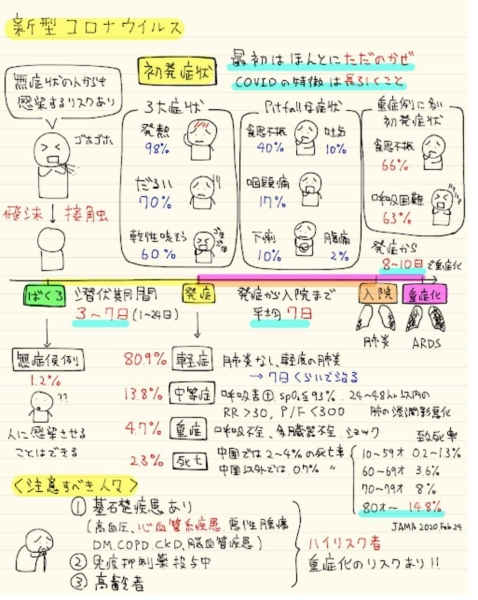 新型コロナウイルス
無症状の人からも
感染するリスクあり
ゴホゴホ
飛沫 接触
初発症状
最初はほんとにただのかぜ
COVIDの特徴は長引くこと
3大症状
発熱
98%
だるい
70%
乾性咳そう
60%
Pitfallな症状
食思不振
40%
嘔吐
10%
咽頭痛
17%
下痢
10%
腹痛
2%
重症例に多い
初発症状
食思不振
66%
呼吸困難
63%
発症から
8~10日で重症化
ばくろ
潜伏期間
3~7日(1~24日)
発症
発症から入院まで
平均7日
入院
重症化
肺炎
ARDS
無症候例
1.2%
??
人に感染させる
ことはできる
80.9% 軽症 肺炎なし、軽度の肺炎
→7日くらいで治る
13.8% 中等症 呼吸苦⊕. SpO₂≦93%. 24~48hr以内の
RR>30, P/F<300 肺の浸潤影悪化
4.7% 重症 呼吸不全、多臓器不全、ショック
2.3% 死亡 中国では2~4%の死亡率
中国以外では0.7% 〃
致死率
10~59才 0.2~1.3%
60~69才 3.6%
70~79才 8%
80才~ 14.8%
JAMA 2020 Feb 24
<注意すべき人々>
① 基礎疾患あり
(高血圧、心血管系疾患 悪性腫瘍
DM. COPD. CKD. 脳血管疾患)
② 免疫抑制薬投与中
③ 高齢者
ハイリスク者
重症化のリスクあり!!